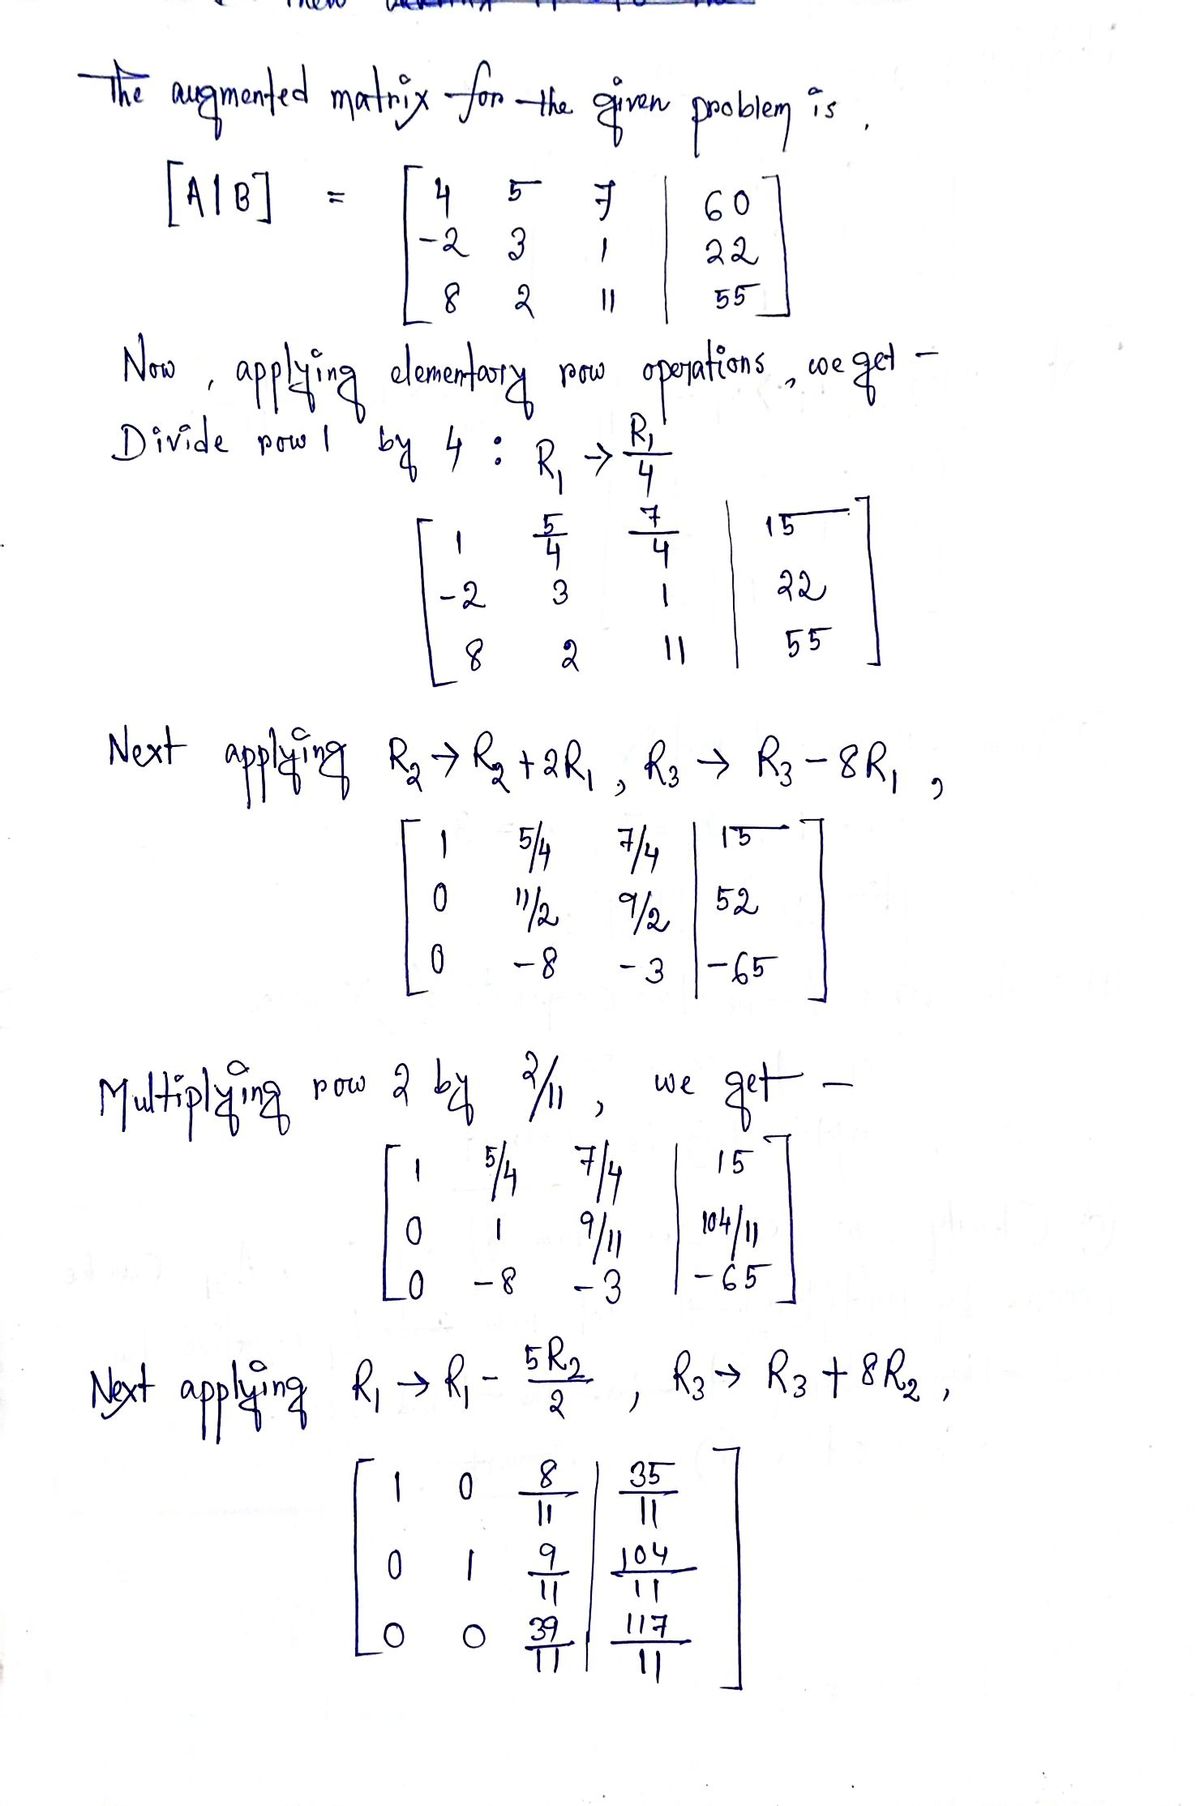 The augmented matrix for the given problem is,
[A|B] = [ 4 5 7 | 60
-2 3 1 | 22
8 2 11 | 55 ]
Now, applying elementary row operations, we get -
Divide row 1 by 4 : R₁ → R₁/4
[ 1 5/4 7/4 | 15
-2 3 1 | 22
8 2 11 | 55 ]
Next applying R₂ → R₂ + 2R₁, R₃ → R₃ - 8R₁,
[ 1 5/4 7/4 | 15
0 11/2 9/2 | 52
0 -8 -3 | -65 ]
Multiplying row 2 by 2/11, we get -
[ 1 5/4 7/4 | 15
0 1 9/11 | 104/11
0 -8 -3 | -65 ]
Next applying R₁ → R₁ - 5R₂/2, R₃ → R₃ + 8R₂,
[ 1 0 8/11 | 35/11
0 1 9/11 | 104/11
0 0 39/11 | 117/11 ]